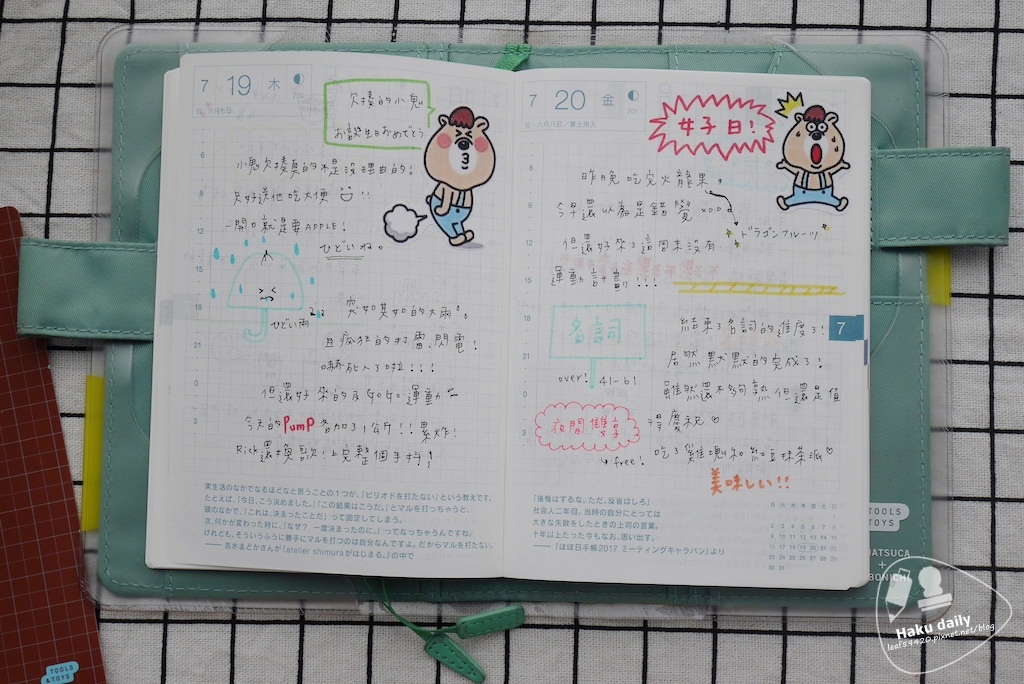 7 19 木
六月七日
欠揍的小鬼
お誕生日おめでとう
小鬼欠揍真的不是沒理由的!
只好送他吃大便 !!
一開口就是要APPLE!
ひどいね。
ひどい雨
突如其如的大雨
且瘋狂的打雷、閃電!
嚇死人了啦!!!
但還好 來的及 GOGO 運動~
今天的 PUMP 各加了1公斤!! 累炸!
Rick還換歌! 上完整個手抖!
6
9
12
15
18
21
0
3
実生活のなかでなるほどなと思うことの1つが、「ピリオドを打たない」という教えです。
たとえば、「今日、こう決めました。」「この結果はこうだ。」とマルを打つっちゃうと、
頭のなかで、「これは、決まったことだ」って固定してしまう。
次、何かが変わった時に、「なぜ? 一度決まったのに。」ってなっちゃうんですね。
けれども、そういうふうに勝手にマルを打つのは自分なんですよ。だからマルを打たない。
── 志村まどかさんが『atelier shimuraがはじまる。』の中で
7 20 金
六月八日/富士用入
好子日!
昨晚 吃完火龍果,
今早還以為是錯覺 XDDD
ドラゴンフルーツ
但還好來了這周末沒有
運動計劃!!!
名詞
over! 41-61
結束了名詞的進度了!
居然默默的完成了!
雖然還不夠熟 但還是值
得慶祝♡
夜間雙享
free!
吃了雞塊和紅豆抹茶派♡
美味しい!!
6
9
12
15
18
21
0
3
7
「後悔はするな、ただ、反省はしろ」
社会人二年目。当時の自分にとっては
大きな失敗をしたときの上司の言葉。
十年以上たった今もなお、思い出す。
──『ほぼ日手帳2017 ミーティングキャラバン』より
日 月 火 水 木 金 土
1
2 3 4 5 6 7 8
9 10 11 12 13 14 15
16 17 18 19 20 21 22
23 24 25 26 27 28 29
30 31
TOOLS
&TOYS
TOOLS
&TOYS
MATSUCA
+
BONICHI
Haku daily
leaf54420.pixnet.net/blog